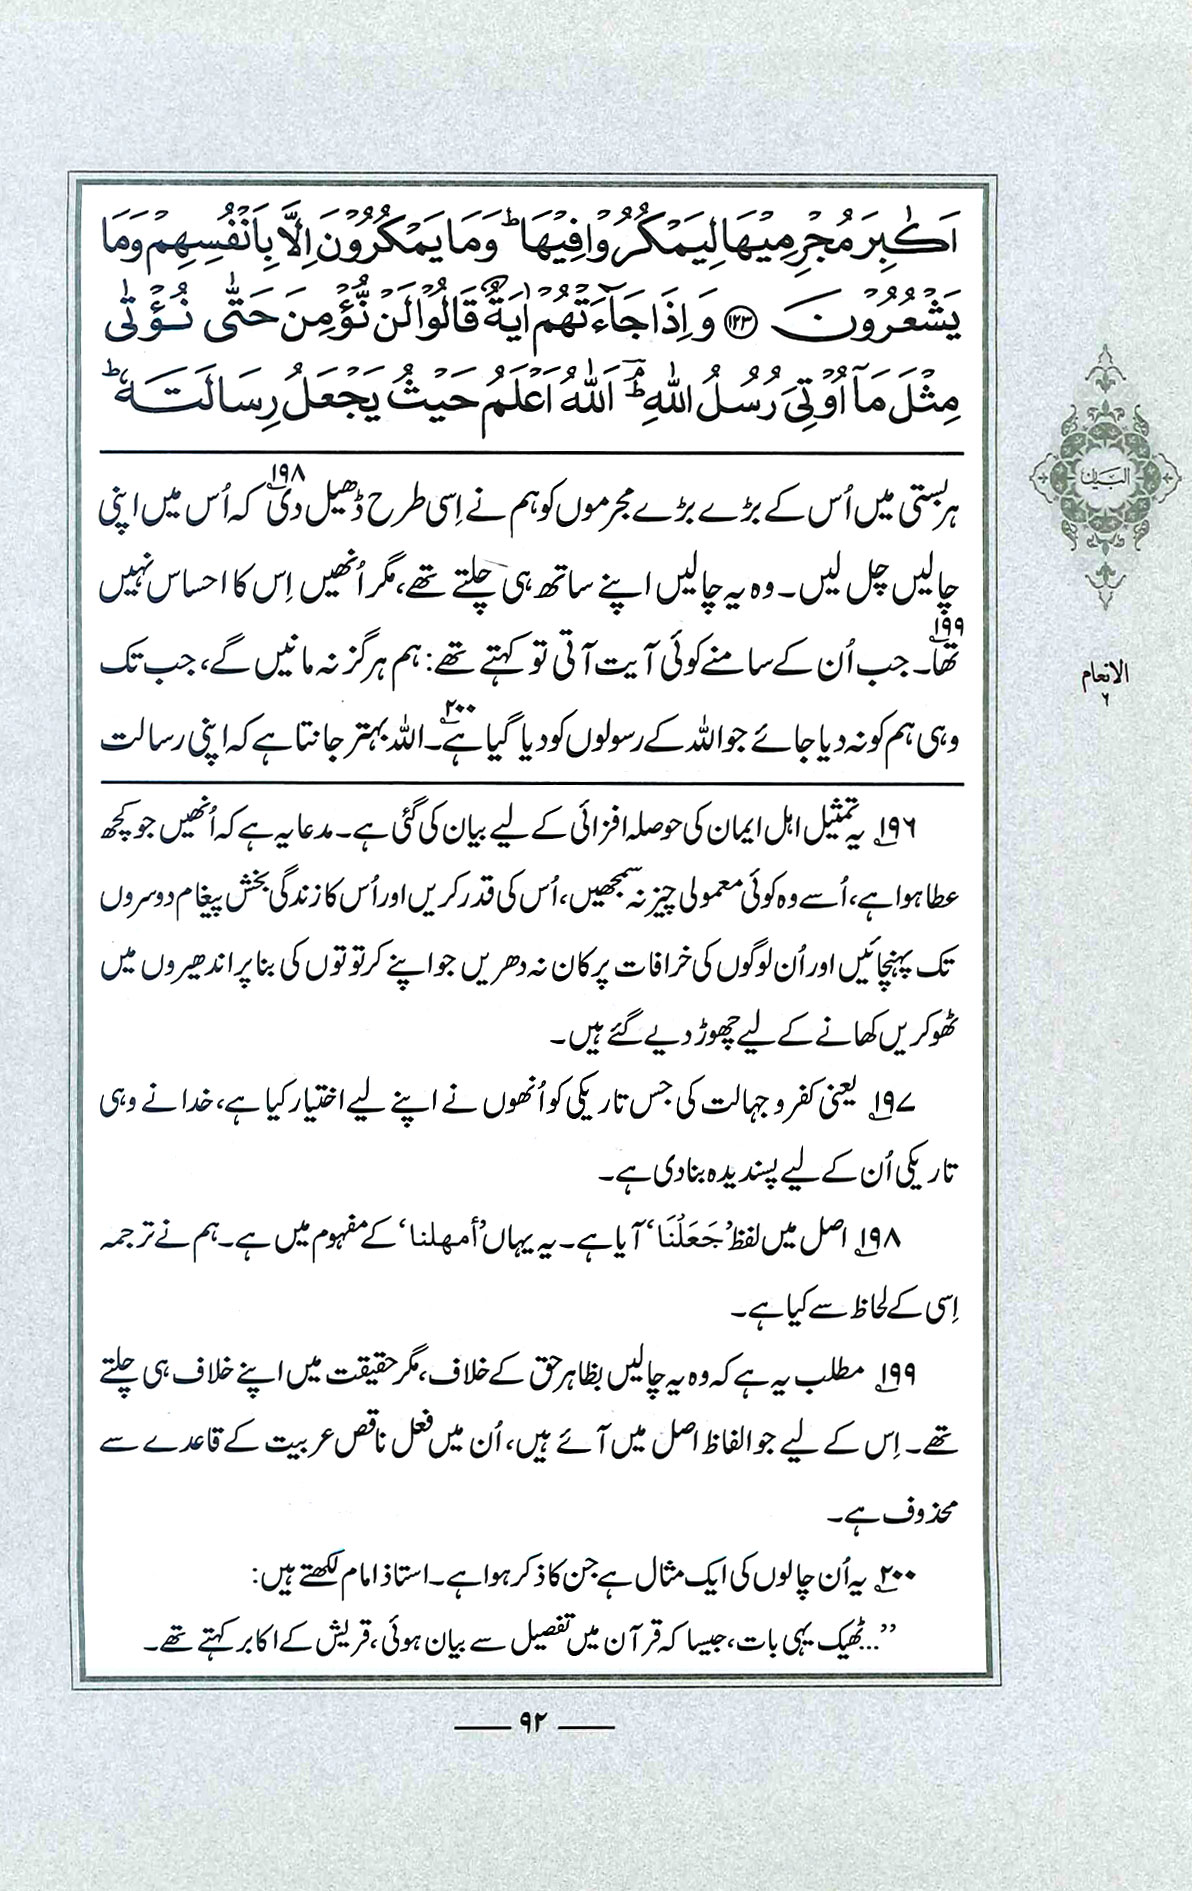 اَكٰبِرَ مُجْرِمِيْهَا لِيَمْكُرُوْا فِيْهَا ؕ وَمَا يَمْكُرُوْنَ اِلَّا بِاَنْفُسِهِمْ وَمَا
يَشْعُرُوْنَ ﴿۱۲۳﴾ وَاِذَا جَآءَتْهُمْ اٰيَةٌ قَالُوْا لَنْ نُّؤْمِنَ حَتّٰى نُؤْتٰى
مِثْلَ مَآ اُوْتِىَ رُسُلُ اللّٰهِ ؕۘ اَللّٰهُ اَعْلَمُ حَيْثُ يَجْعَلُ رِسَالَتَهٗ ؕ
ہر بستی میں اُس کے بڑے بڑے مجرموں کو ہم نے اِسی طرح ڈھیل دی ۱۹۸ کہ اُس میں اپنی
چالیں چل لیں۔ وہ یہ چالیں اپنے ساتھ ہی چلتے تھے، مگر اُنھیں اِس کا احساس نہیں
تھا ۱۹۹۔ جب اُن کے سامنے کوئی آیت آتی تو کہتے تھے: ہم ہرگز نہ مانیں گے، جب تک
وہی ہم کو نہ دیا جائے جو اللہ کے رسولوں کو دیا گیا ہے ۲۰۰۔ اللہ بہتر جانتا ہے کہ اپنی رسالت
۱۹۶ یہ تمثیل اہل ایمان کی حوصلہ افزائی کے لیے بیان کی گئی ہے۔ مدعا یہ ہے کہ اُنھیں جو کچھ
عطا ہوا ہے، اُسے وہ کوئی معمولی چیز نہ سمجھیں، اُس کی قدر کریں اور اُس کا زندگی بخش پیغام دوسروں
تک پہنچائیں اور اُن لوگوں کی خرافات پر کان نہ دھریں جو اپنے کرتوتوں کی بنا پر اندھیروں میں
ٹھوکریں کھانے کے لیے چھوڑ دیے گئے ہیں۔
۱۹۷ یعنی کفر و جہالت کی جس تاریکی کو اُنھوں نے اپنے لیے اختیار کیا ہے، خدا نے وہی
تاریکی اُن کے لیے پسندیدہ بنا دی ہے۔
۱۹۸ اصل میں لفظ ’جَعَلْنَا‘ آیا ہے۔ یہ یہاں ’أمهلنا‘ کے مفہوم میں ہے۔ ہم نے ترجمہ
اِسی کے لحاظ سے کیا ہے۔
۱۹۹ مطلب یہ ہے کہ وہ یہ چالیں بظاہر حق کے خلاف، مگر حقیقت میں اپنے خلاف ہی چلتے
تھے۔ اِس کے لیے جو الفاظ اصل میں آئے ہیں، اُن میں فعل ناقص عربیت کے قاعدے سے
محذوف ہے۔
۲۰۰ یہ اُن چالوں کی ایک مثال ہے جن کا ذکر ہوا ہے۔ استاذ امام لکھتے ہیں:
’’...ٹھیک یہی بات، جیسا کہ قرآن میں تفصیل سے بیان ہوئی، قریش کے اکابر کہتے تھے۔
البیان
الانعام
۶
۹۲